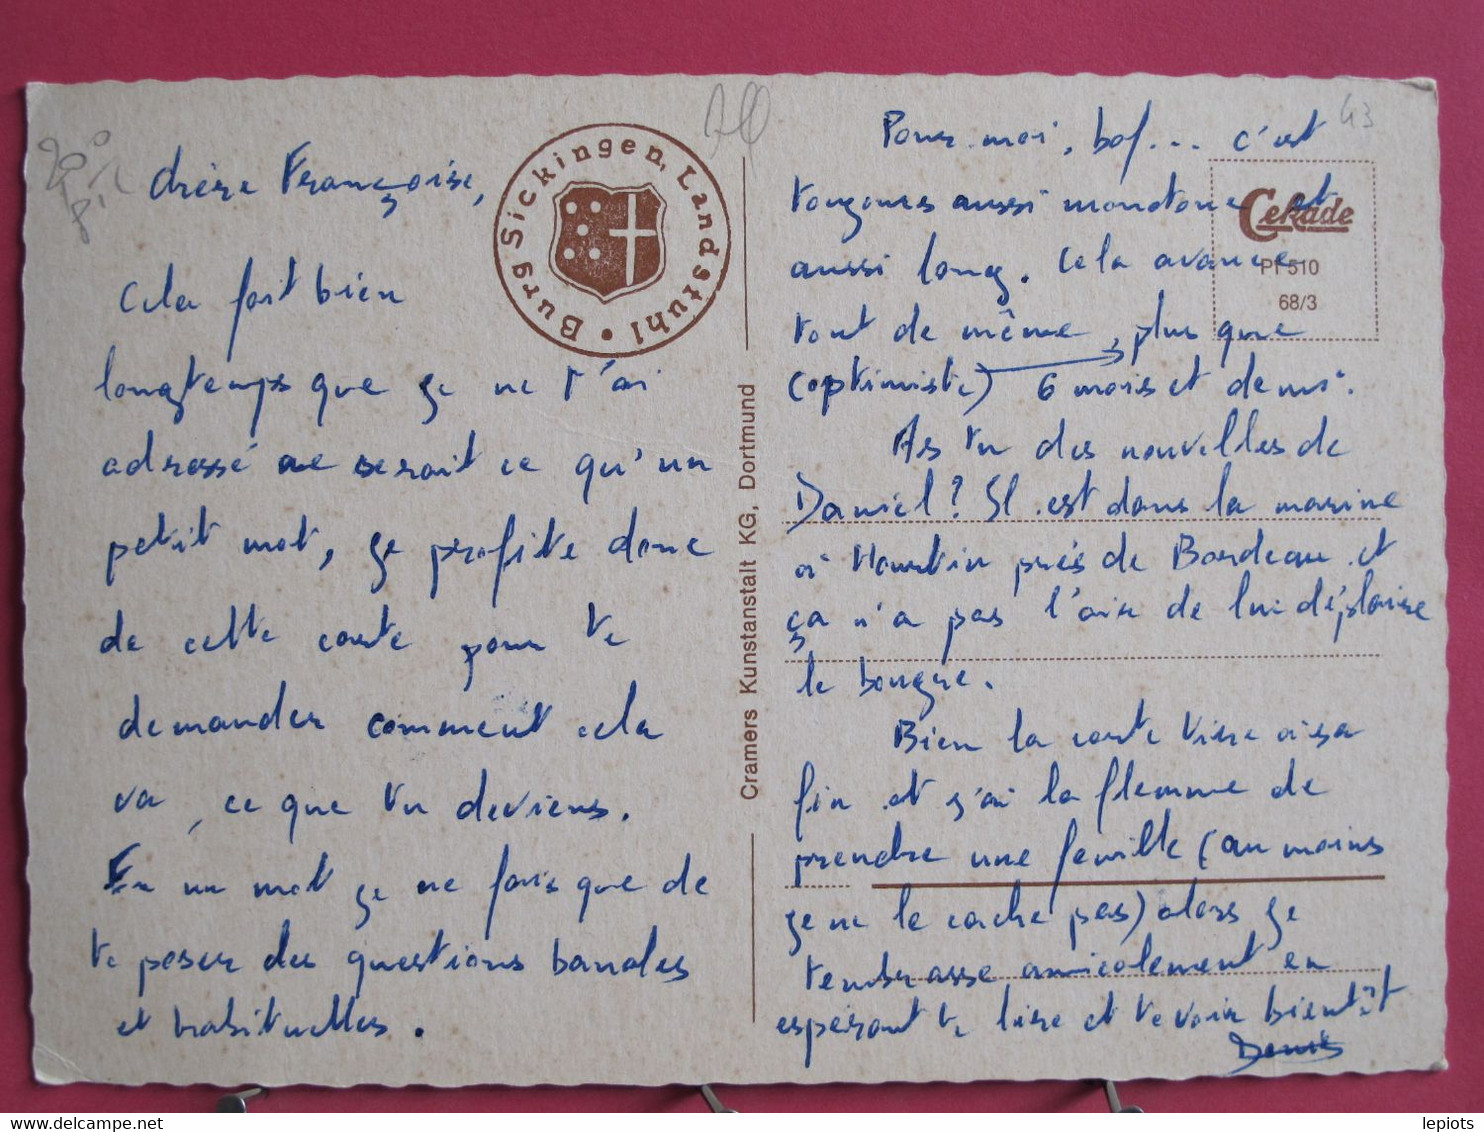 chère Françoise,
Cela fait bien
longtemps que je ne t'ai
adressé ne serait ce qu'un
petit mot, je profite donc
de cette carte pour te
demander comment cela
va, ce que tu deviens.
En un mot je ne fais que de
te poser des questions banales
et habituelles.
Burg Sickingen, Landstuhl
Cramers Kunstanstalt KG, Dortmund
43
Pour moi, bof... c'est
toujours aussi monotone et
aussi long. Cela avance
tout de même, plus que
(optimiste) 6 mois et demi.
As tu des nouvelles de
Daniel? Il est dans la marine
à Hourtin près de Bordeau et
ça n'a pas l'air de lui déplaire
le bougre.
Bien la carte tire à sa
fin et j'ai la flemme de
prendre une feuille (au moins
je ne le cache pas) alors je
t'embrasse amicalement en
espérant te lire et te voir bientôt
Denis
Cekade
Pf 510
68/3
lepiots
www.delcampe.net